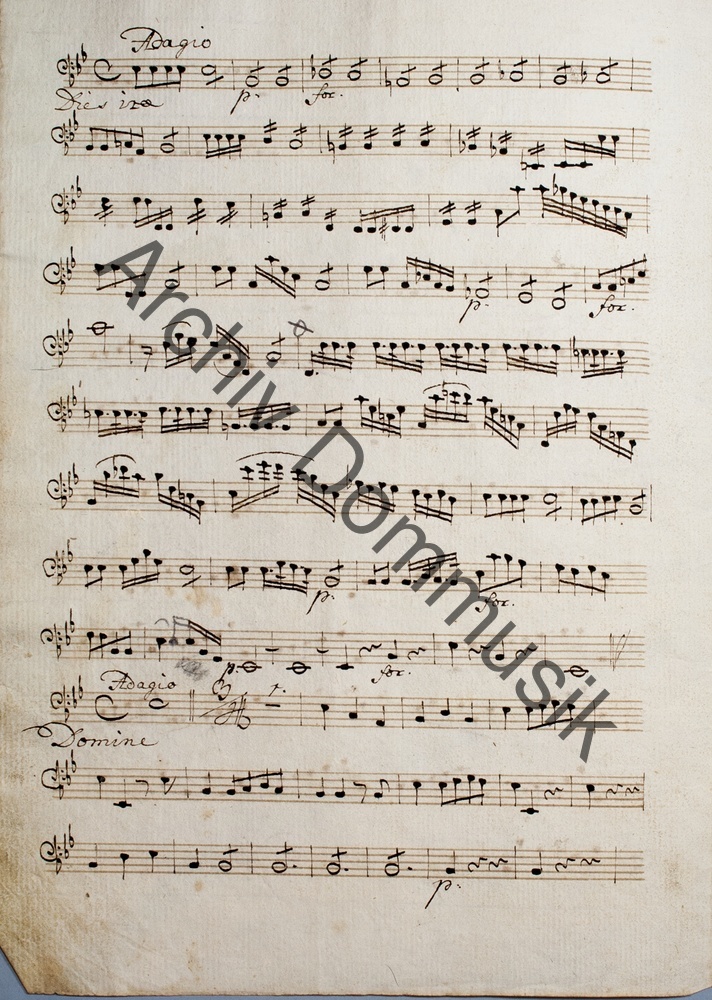 Adagio
Dies iræ
p. for.
p. for.
p. for.
p. for.
Adagio
Domine
p.
Archiv Dommusik